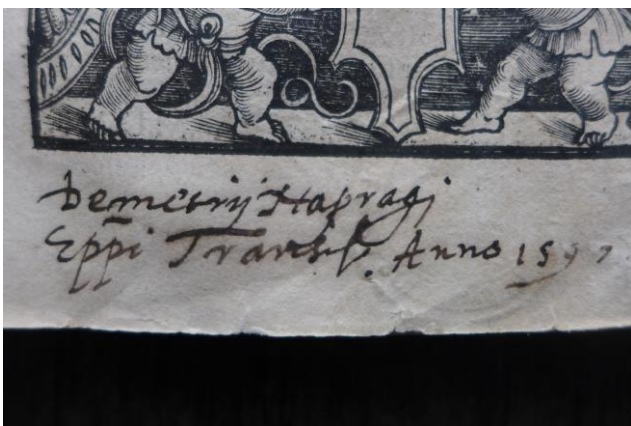 Demetrij Napragj
Eppi Transs. Anno 1597